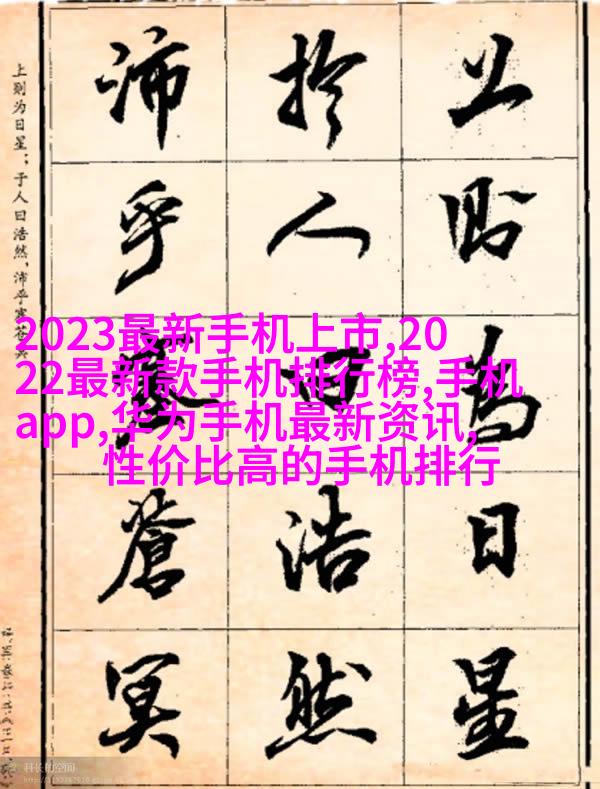 上則為日星
於人曰浩然
沛乎塞蒼冥
上则为日星；于人曰浩然，沛乎塞苍冥
2023最新手机上市,20
22最新款手机排行榜,手机
app,华为手机最新资讯,
性价比高的手机排行
科长的空间